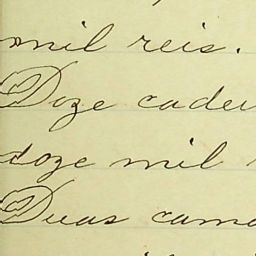 mil reis.
Doze cadei
doze mil
Duas cama